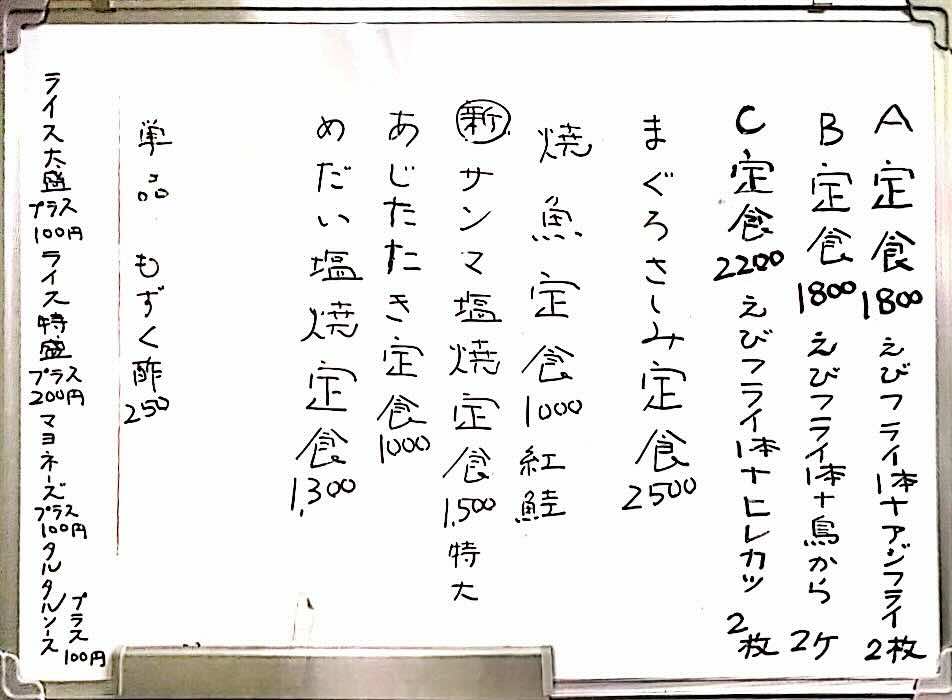 A定食1800えびフライ1本+アジフライ2枚
B定食1800えびフライ1本+鳥から2ケ
C定食2200えびフライ1本+ヒレカツ2枚
まぐろさしみ定食2500
焼魚定食1000紅鮭
新サンマ塩焼定食1,500特大
あじたたき定食1000
めだい塩焼定食1,300
単品 もずく酢250
ライス大盛プラス100円 ライス特盛プラス200円 マヨネーズプラス100円 タルタルソースプラス100円